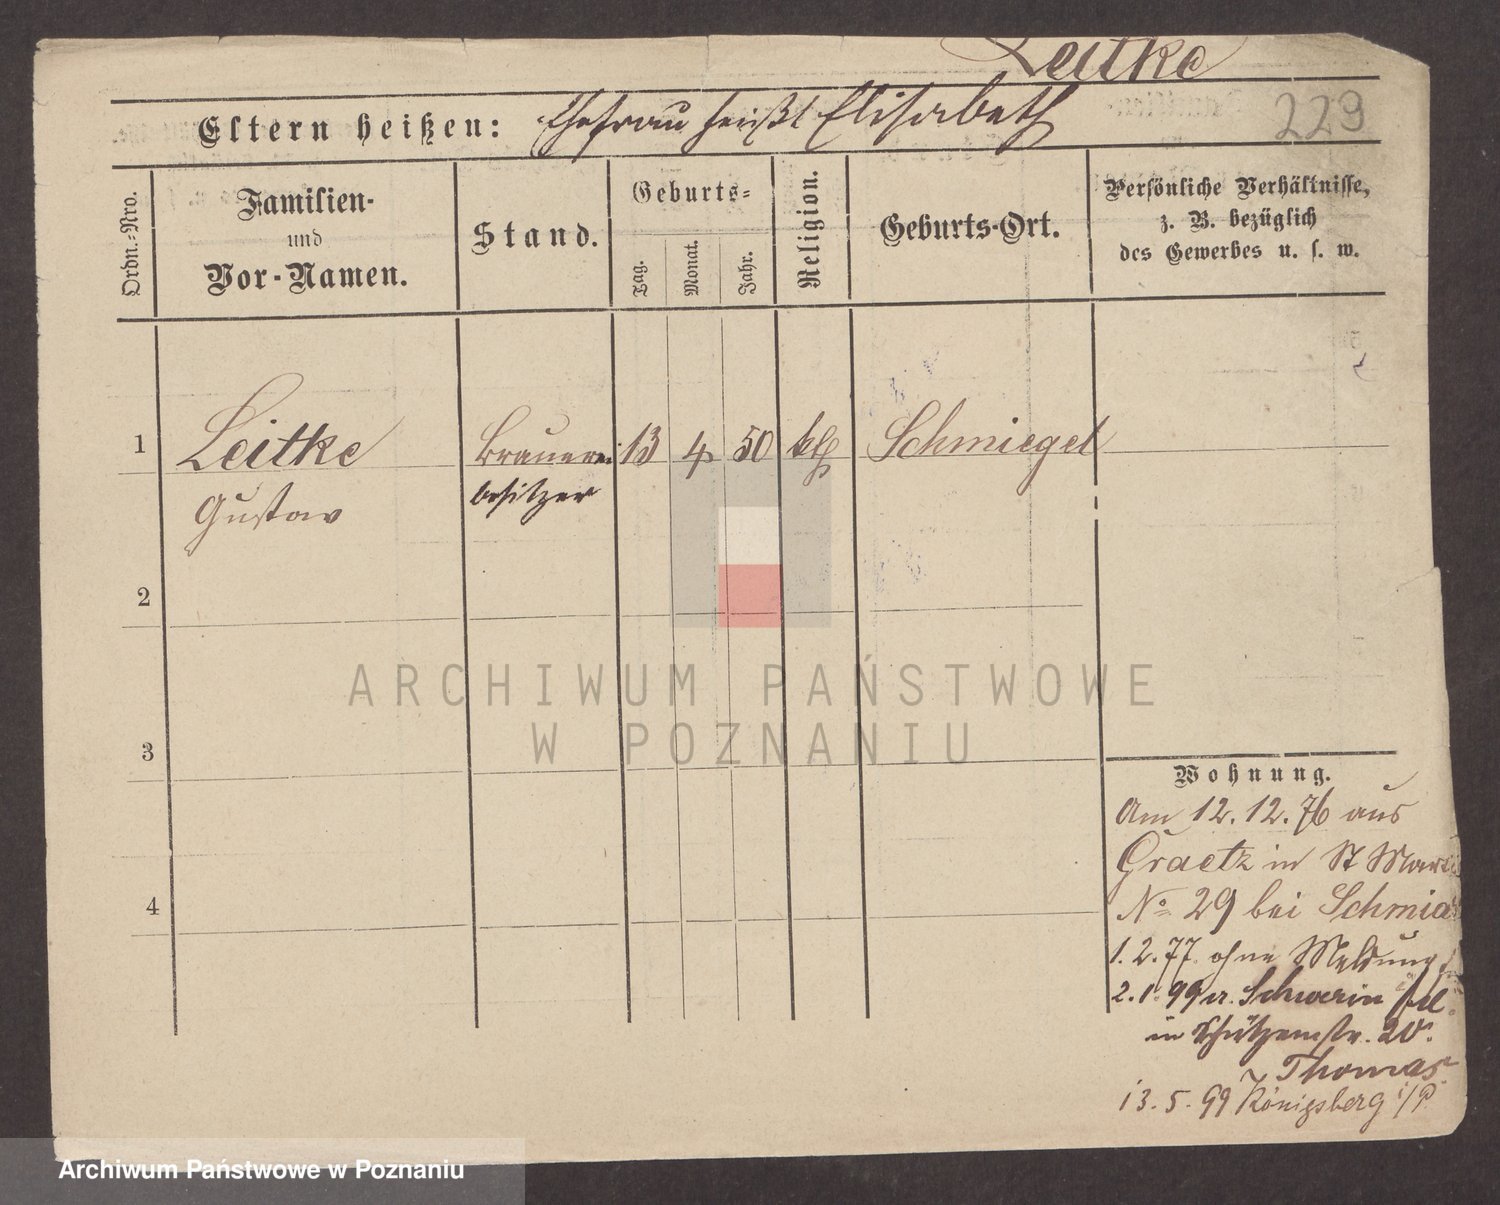 Leitke
229
Eltern heißen: Ehefrau heißt Elisabeth
Ordn.-Nro.
Familien-
und
Vor-Namen.
Stand.
Geburts-
Tag.
Monat.
Jahr.
Religion.
Geburts-Ort.
Persönliche Verhältnisse,
z. B. bezüglich
des Gewerbes u. s. w.
1 Leitke Brauerei 13 4 50 kth Schmiegel
Gustav besitzer
2
3
4
ARCHIWUM PAŃSTWOWE
W POZNANIU
Wohnung.
Am 12. 12. 76 aus
Graetz in St Mart
No 29 bei
1. 2. 77. ohne Meldung
2. 1. 99 a. Schwerin
in Schützenstr. 20.
Thomas
13. 5. 99 Königsberg i/P
Archiwum Państwowe w Poznaniu